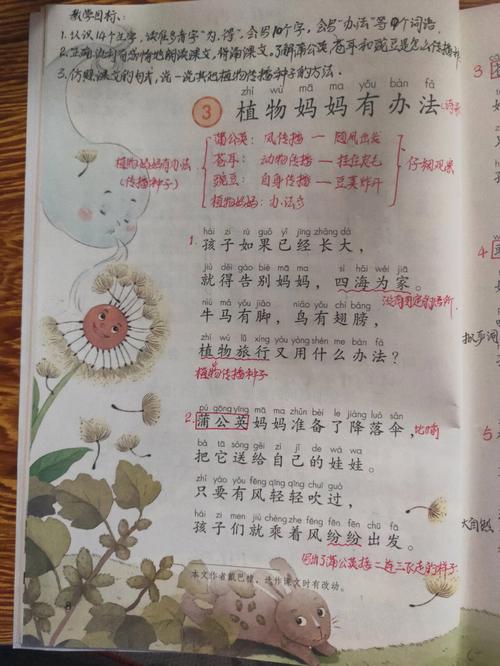 教学目标:
1.认识14个生字,读准多音字"为、得"。会写10个字,会写"办法"等9个词语。
2.正确、流利有感情地朗读课文,背诵课文。了解蒲公英、苍耳和豌豆是怎么传播种
3.仿照课文的句式,说一说其他植物传播种子的方法.
zhí wù mā ma yǒu bàn fǎ
3 植物妈妈有办法
蒲公英:风传播 — 随风出发
苍耳:动物传播 — 挂住皮毛
豌豆:自身传播 — 豆荚炸开
植物妈妈:办法多
植物妈妈有办法
(传播种子)
仔细观察
hái zi rú guǒ yǐ jīng zhǎng dà
1.孩子如果已经长大,
jiù děi gào bié mā ma sì hǎi wéi jiā
就得告别妈妈,四海为家。
niú mǎ yǒu jiǎo niǎo yǒu chì bǎng
牛马有脚,鸟有翅膀,
zhí wù lǚ xíng yòu yòng shén me bàn fǎ
植物旅行又用什么办法?
植物传播种子
pú gōng yīng mā ma zhǔn bèi le jiàng luò sǎn
2.蒲公英妈妈准备了降落伞,
比喻
bǎ tā sòng gěi zì jǐ de wá wa
把它送给自己的娃娃。
zhǐ yào yǒu fēng qīng qīng chuī guò
只要有风轻轻吹过,
hái zi men jiù chéng zhe fēng fēn fēn chū fā
孩子们就乘着风纷纷出发。
写出了蒲公英接二连三飞走的样子
本文作者戴巴棣,选作课文时有改动。
8